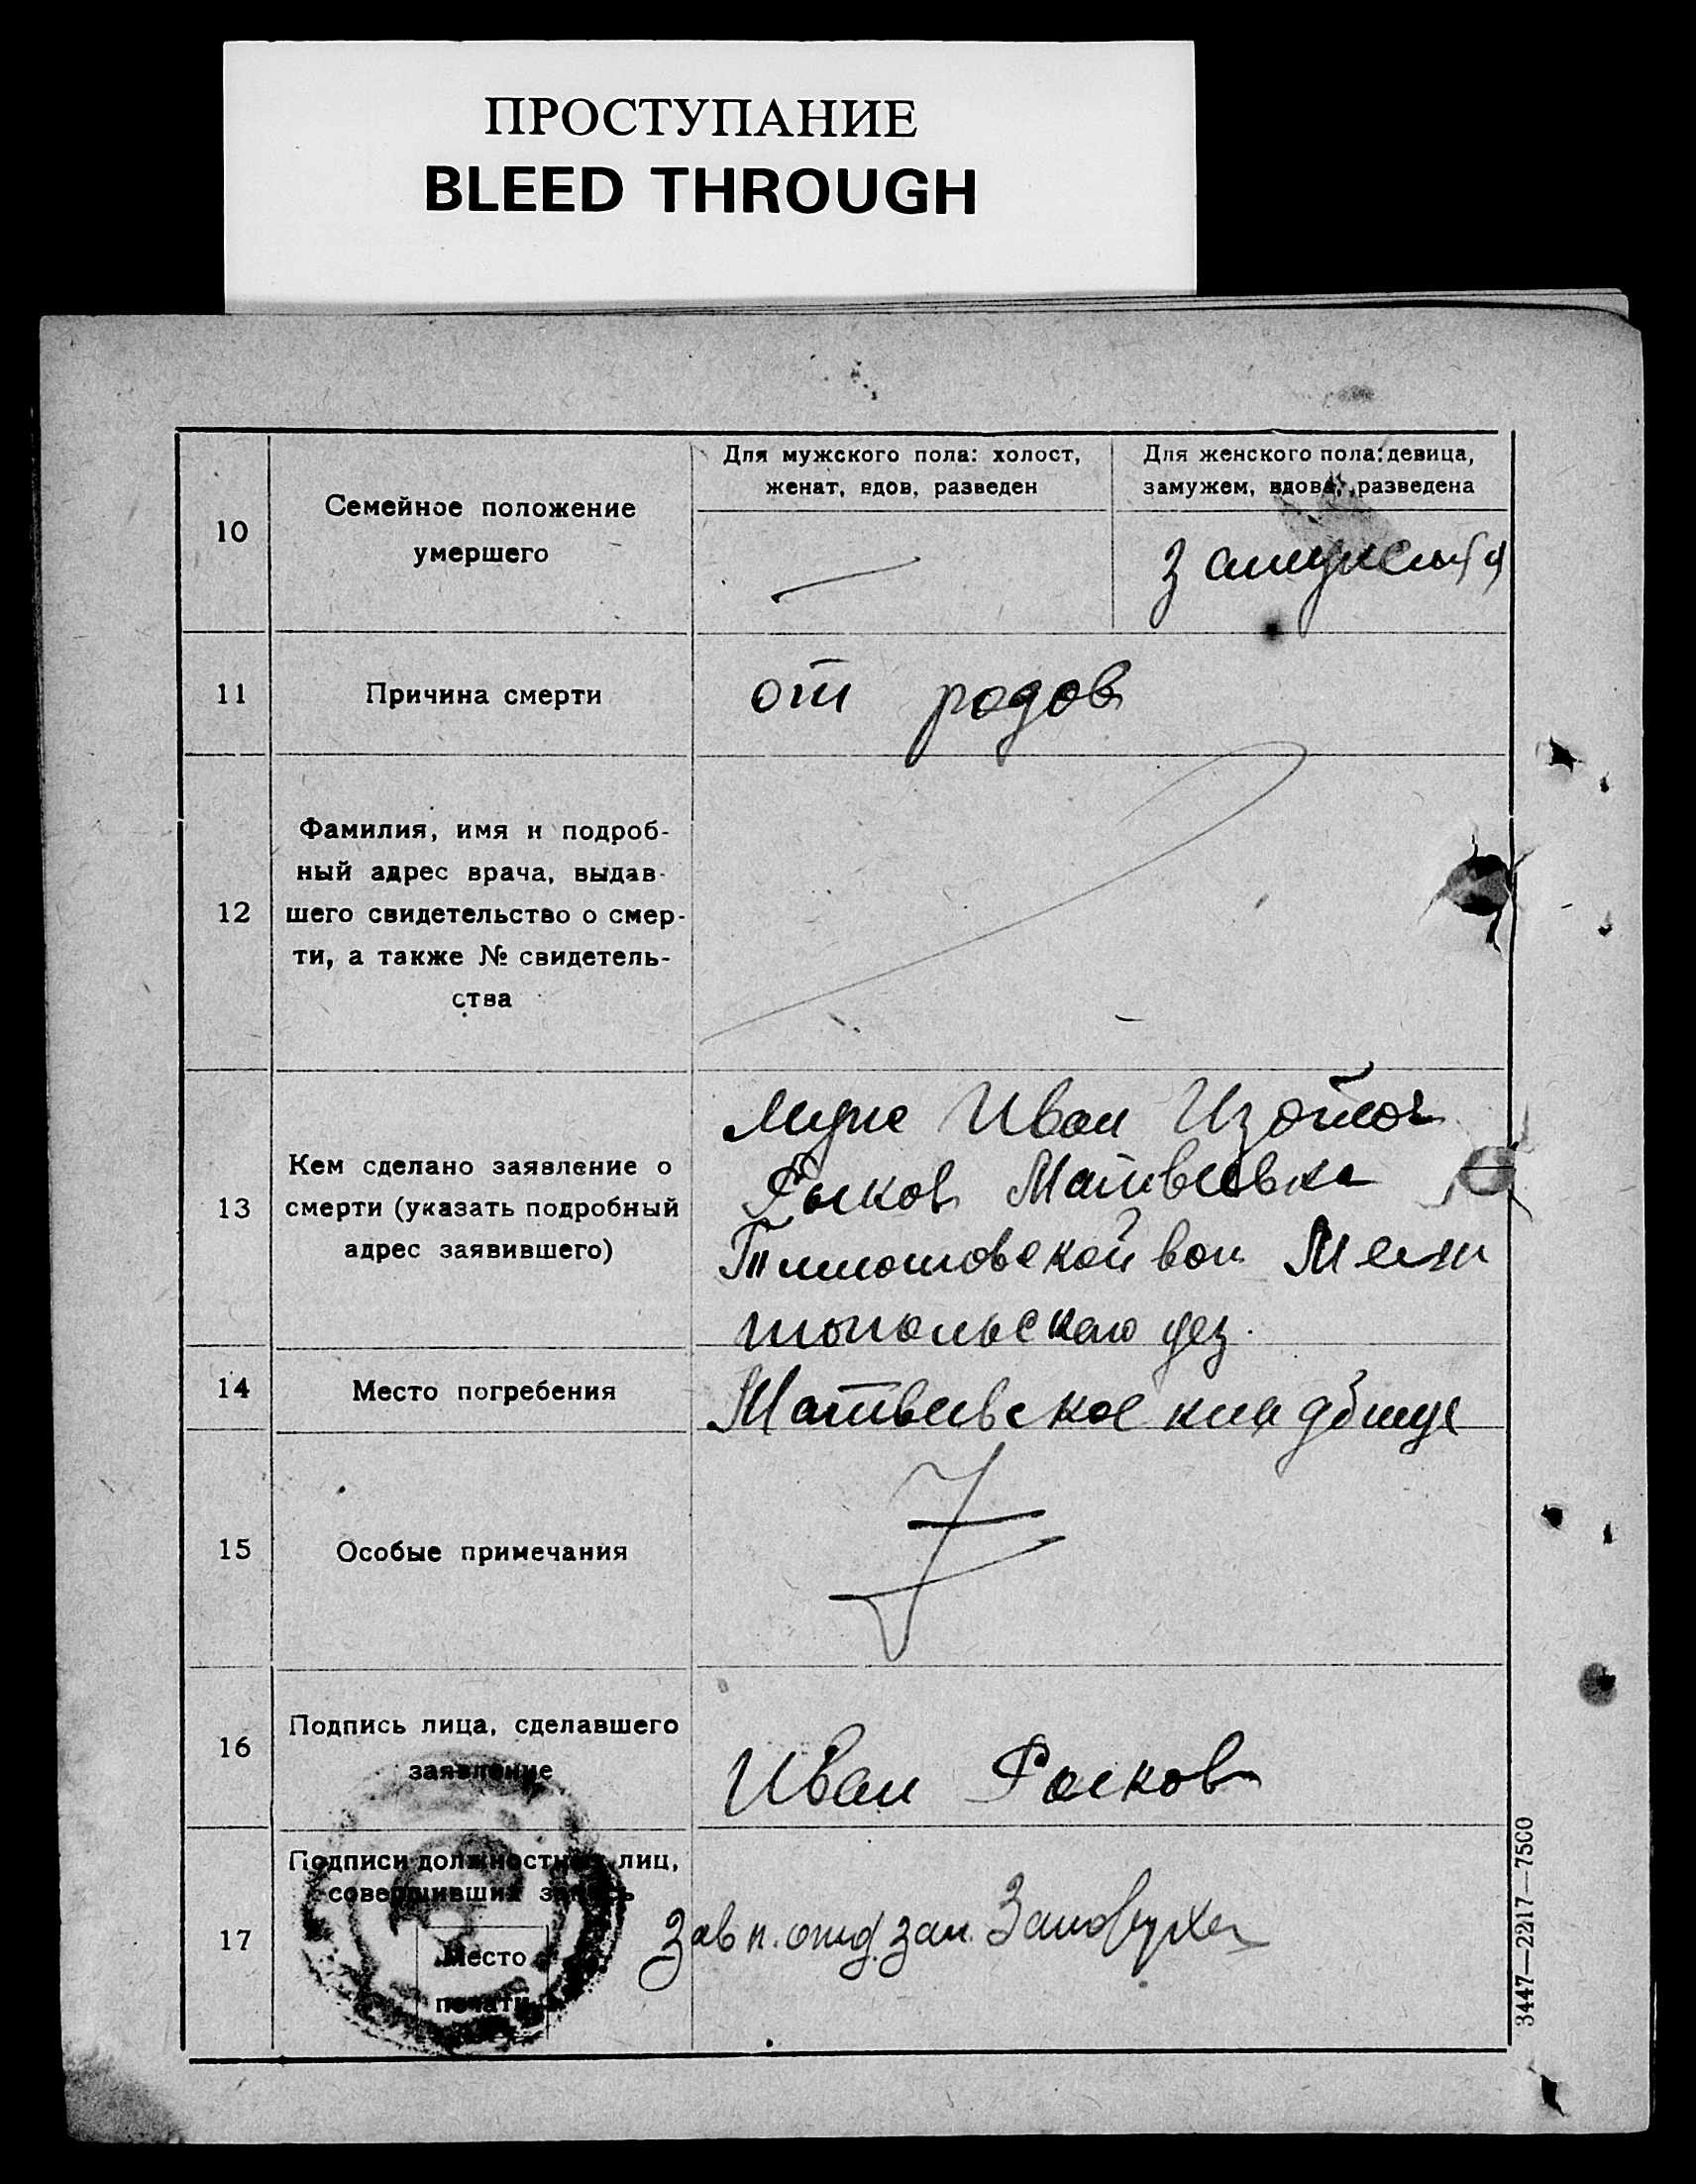 ПРОСТУПАНИЕ
BLEED THROUGH
10
Семейное положение
умершего
Для мужского пола: холост,
женат, вдов, разведен
Для женского пола: девица,
замужем, вдова, разведена
—
11
Причина смерти
от родов
12
Фамилия, имя и подроб-
ный адрес врача, выдав-
шего свидетельство о смер-
ти, а также № свидетель-
ства
13
Кем сделано заявление о
смерти (указать подробный
адрес заявившего)
муже Иван
Матвеевка
вол Мели
топольского уез.
14
Место погребения
Матвеевское кладбище
15
Особые примечания
16
Подпись лица, сделавшего
заявление
Иван
17
Подписи должностных лиц,
совершивших запись
Место
печати
Зав п. отд зап.
3447—2217—7500